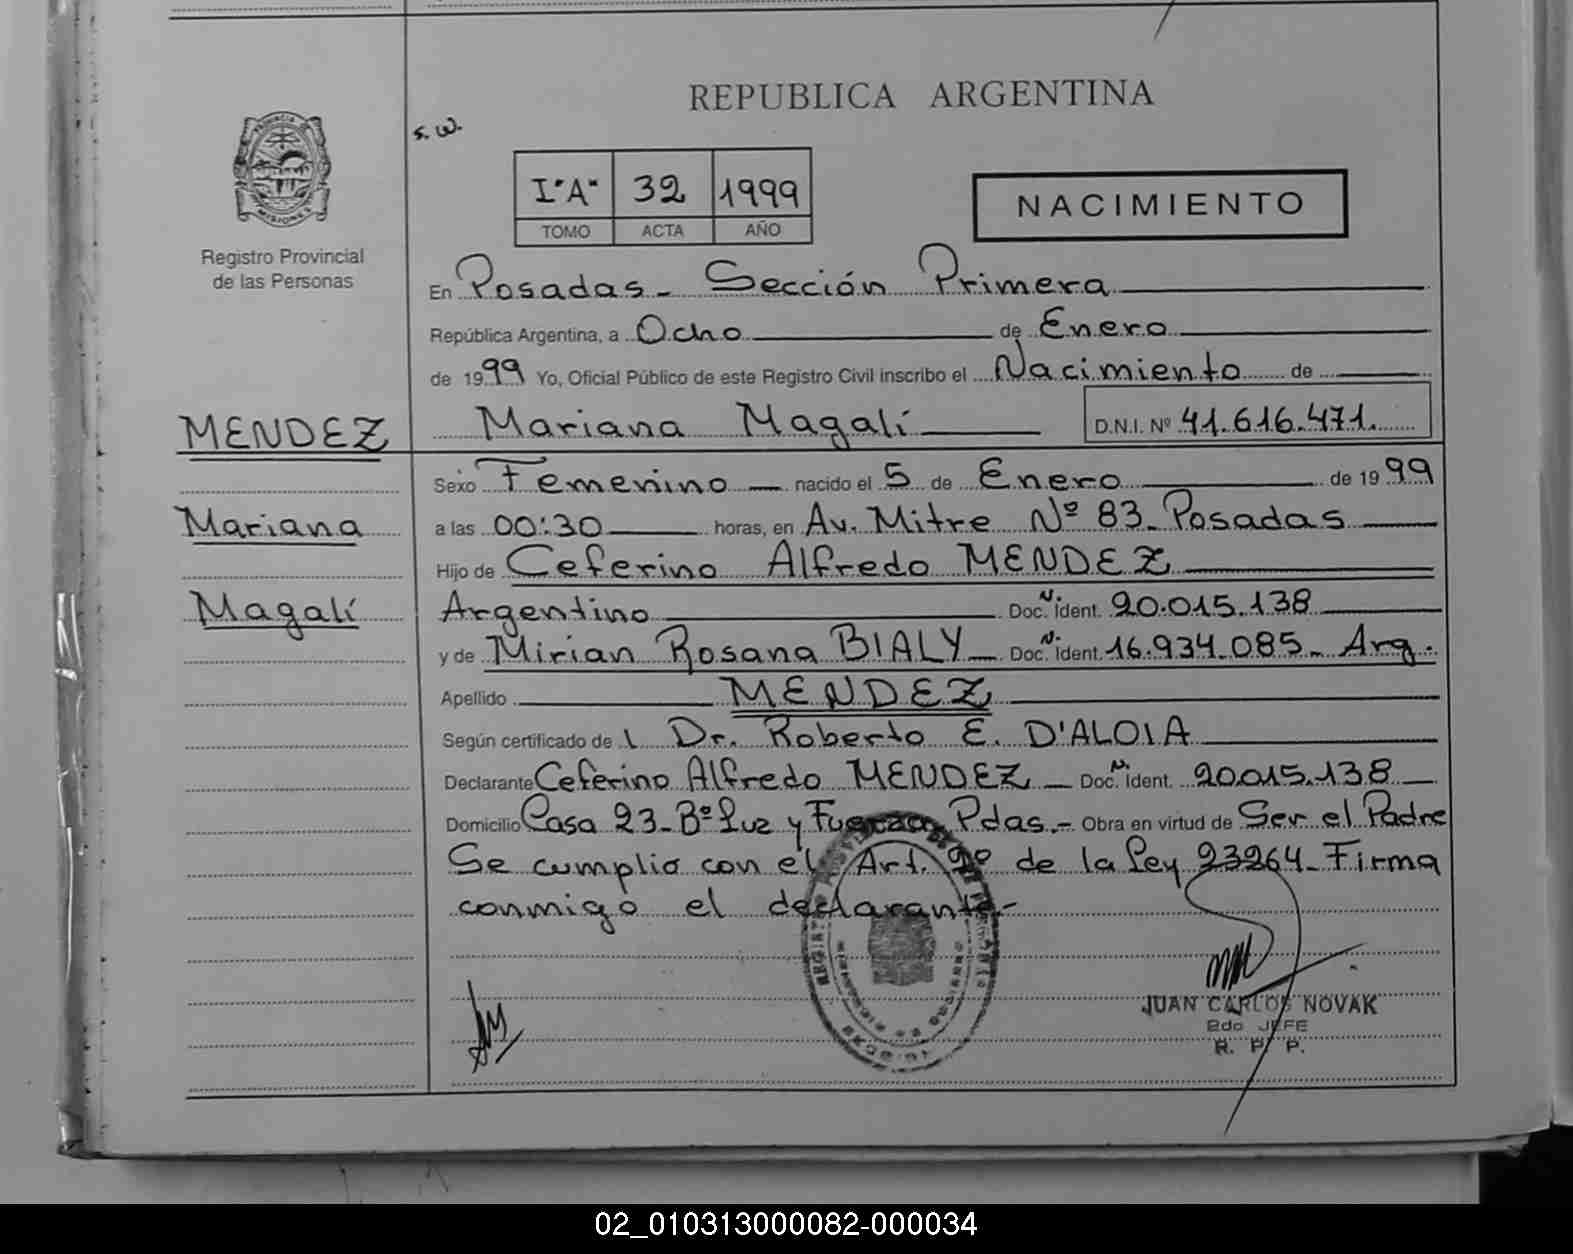 REPUBLICA ARGENTINA
s. w.
PROVINCIA
MISIONES
Registro Provincial
de las Personas
I "A" 32 1999
TOMO ACTA AÑO
NACIMIENTO
En Posadas - Sección Primera
República Argentina, a Ocho de Enero
de 1999 Yo, Oficial Público de este Registro Civil inscribo el Nacimiento de
MENDEZ
Mariana Magalí D.N.I. Nº 41.616.471.
Sexo Femenino nacido el 5 de Enero de 1999
Mariana
a las 00:30 horas, en Av. Mitre Nº 83 - Posadas
Hijo de Ceferino Alfredo MENDEZ
Magalí
Argentino Doc. N. Ident. 20.015.138
y de Mirian Rosana BIALY - Doc. N. Ident. 16.934.085 - Arg.
Apellido MENDEZ
Según certificado de l Dr. Roberto E. D'ALOIA
Declarante Ceferino Alfredo MENDEZ - Doc. N. Ident. 20.015.138
Domicilio Casa 23 - Bº Luz y Fuerza - Pdas. - Obra en virtud de Ser el Padre
Se cumplio con el Art. 2º de la Ley 23264 - Firma
conmigo el declarante -
JUAN CARLOS NOVAK
2do JEFE
R. P. P.
02_010313000082-000034